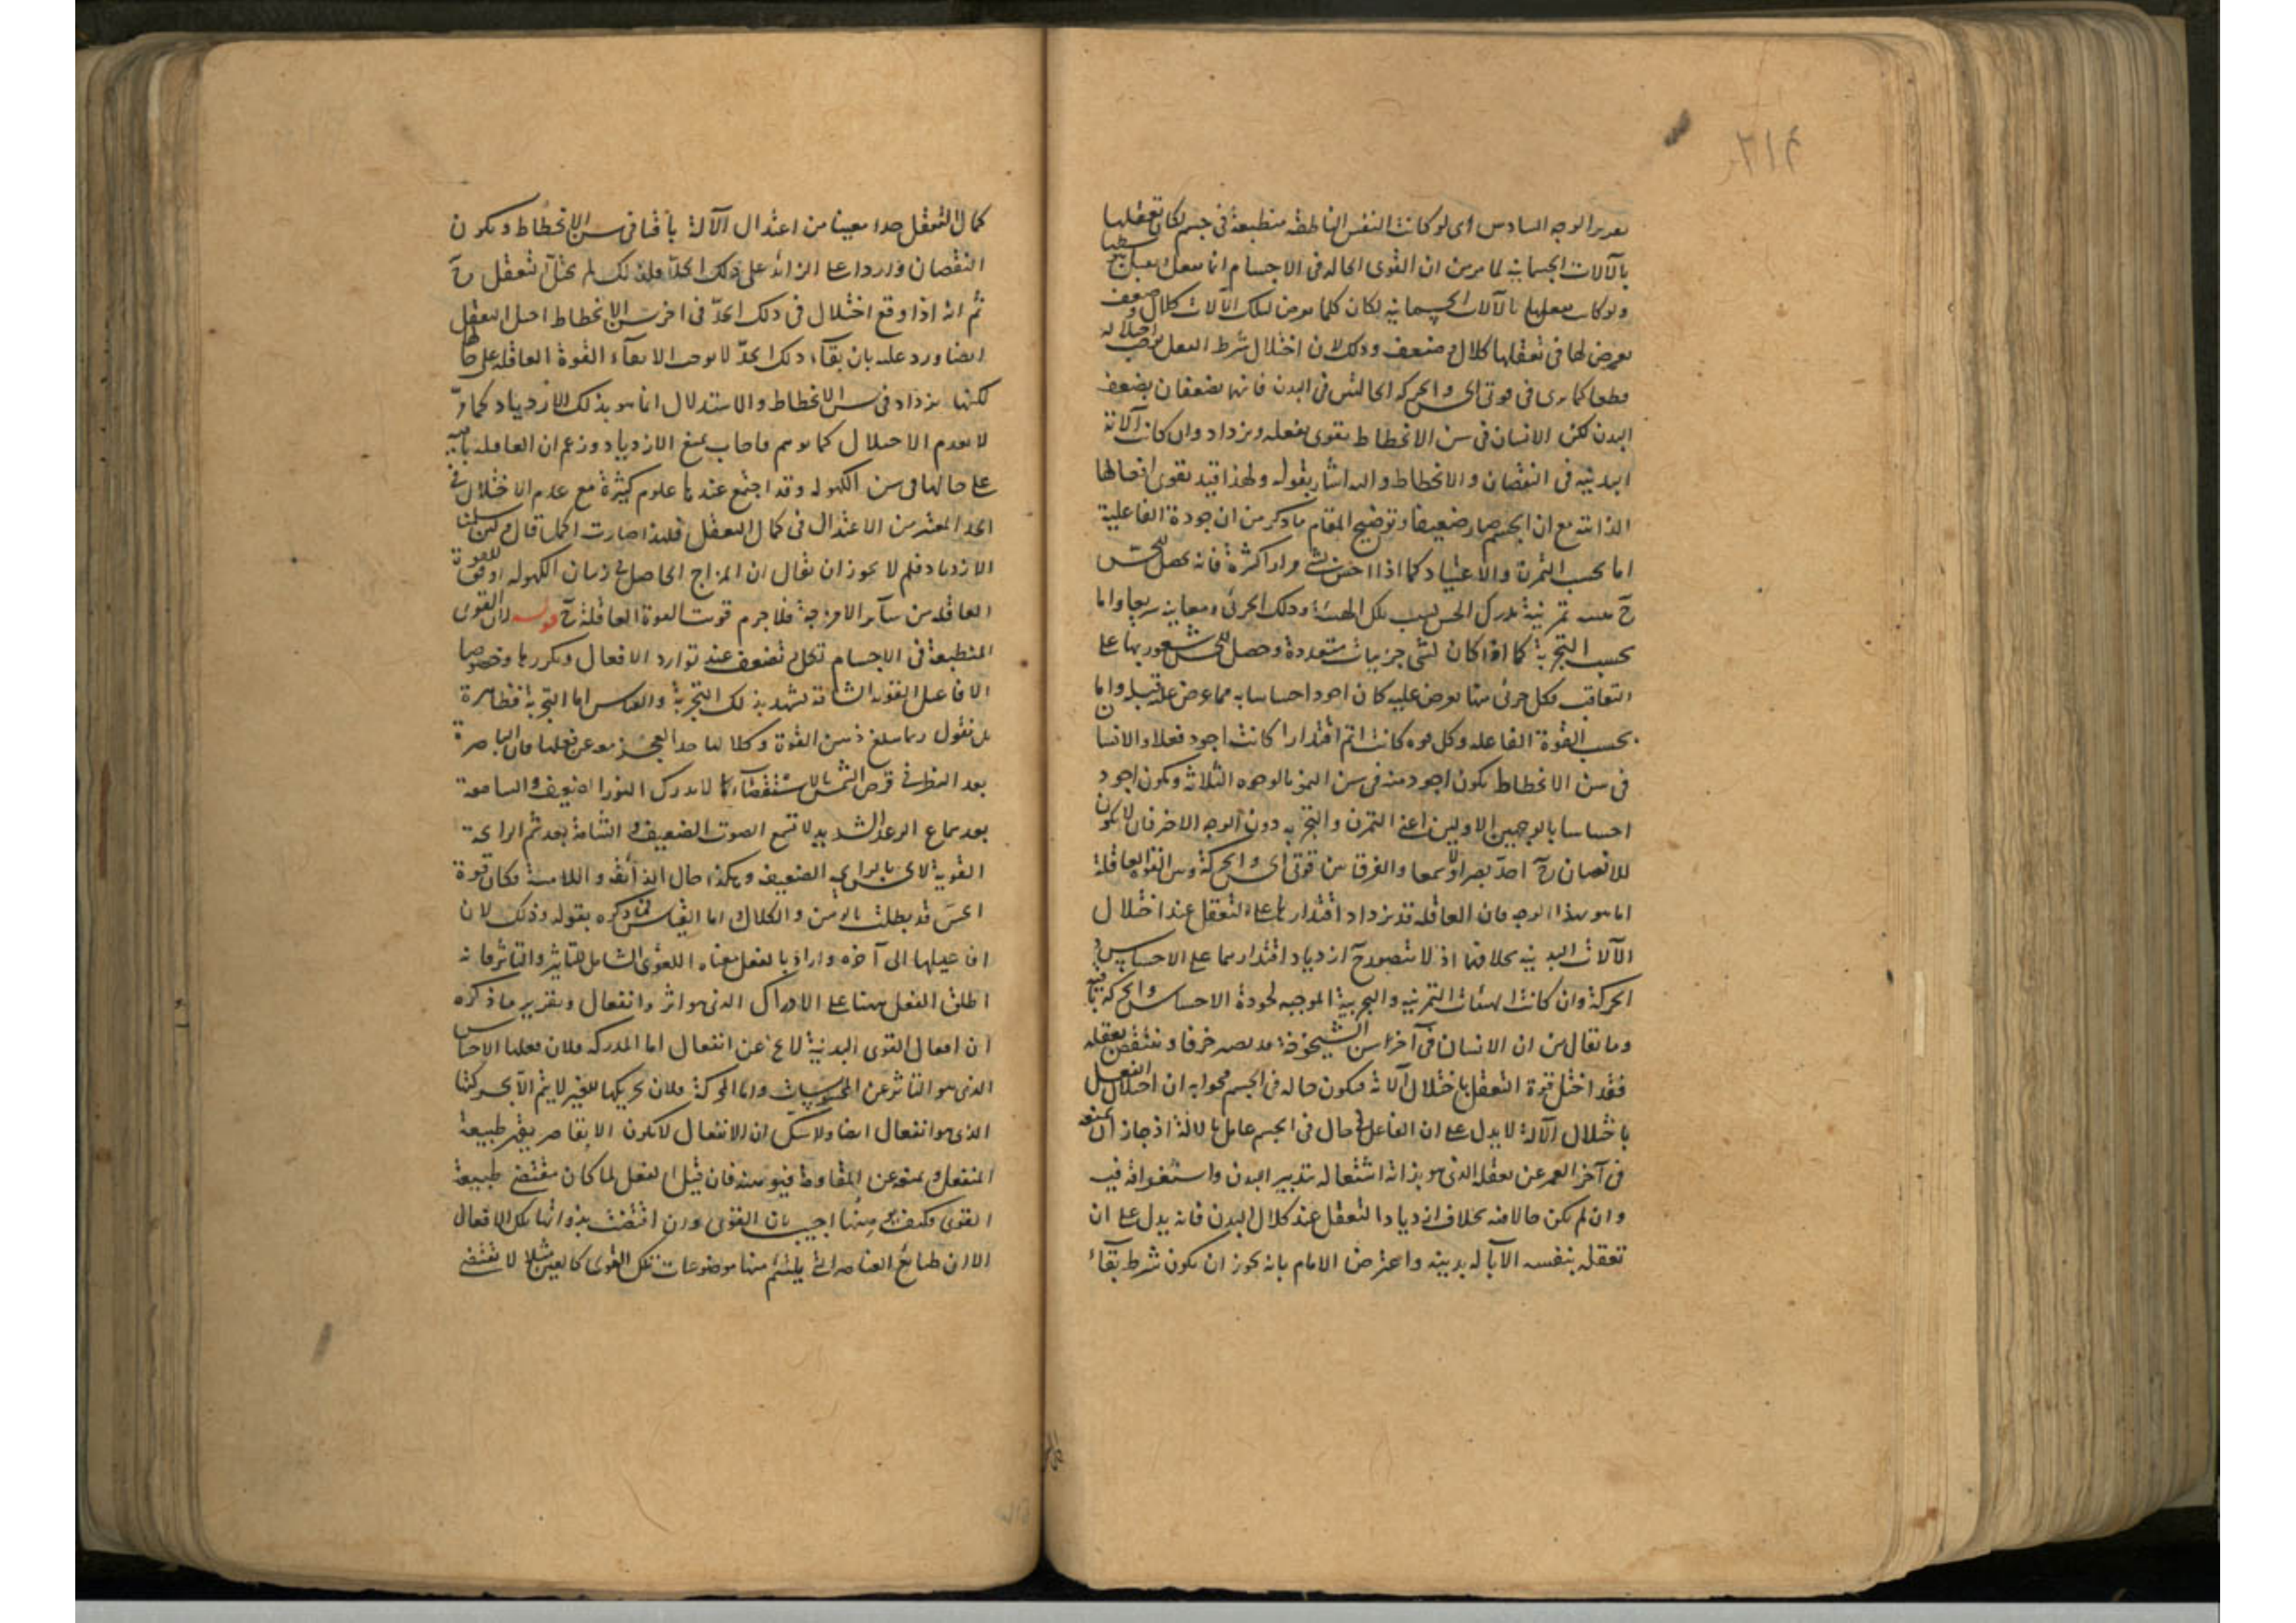 ٢١٤
تقرير الوجه السادس اى لو كانت النفس الناطقة منطبعة فى جسم لكان تعقلها
بالآلات الجسمانية لما مر من ان القوى الحالة فى الاجسام انما تفعل بتوسطها
ولو كان تعقلها بالآلات الجسمانية لكان كلما يعرض لتلك الآلات كلال وضعف
يعرض لها فى تعقلها كلال وضعف وذلك لان اختلال شرط الفعل يوجب اختلاله
قطعا كما يرى فى قوتى الحس والحركة الحالتين فى البدن فانهما تضعفان بضعف
البدن لكن الانسان فى سن الانحطاط يقوى تعقله ويزداد وان كانت آلاته
البدنية فى النقصان والانحطاط واليه اشار بقوله ولهذا قيد بقوى افعالها
الذاتية مع ان الجسم صار ضعيفا وتوضيح المقام ما ذكر من ان جودة الفاعلية
اما بحسب التمرن والاعتياد كما اذا احس بشئ مرارا كثيرة فانه يحصل للحس
ح هيئة تمرنية يدرك الحس بسبب تلك الهيئة وذلك الجزئى ومعانيه سريعا واما
بحسب التجربة كما اذا كان لشئ جزئيات متعددة وحصل للحس شعور بها على
التعاقب فكل جزئى منها يعرض عليه كان اجود احساسا به مما عرض عليه قبله واما
بحسب القوة الفاعلة وكل قوة كانت اتم اقتدارا كانت اجود فعلا والانسان
فى سن الانحطاط يكون اجود منه فى سن النمو بالوجوه الثلاثة ويكون اجود
احساسا بالوجهين الاولين اعنى التمرن والتجربة دون الوجه الاخر فان لا يكون
للانسان ح احد بصرا ولا سمعا والفرق بين قوتى الحس والحركة وبين القوة العاقلة
انما هو بهذا الوجه فان العاقلة قد يزداد اقتدارها على التعقل عند اختلال
الآلات البدنية بخلافهما اذ لا يتصور ح ازدياد اقتدارهما على الاحساس و
الحركة وان كانت الهيئات التمرنية والتجربية الموجبة لجودة الاحساس والحركة باقية
وما يقال من ان الانسان فى آخر سن الشيخوخة قد يصير خرفا وينتقص تعقله
فقد اختل قوة التعقل باختلال آلاته فيكون حاله فى الجسم فجوابه ان اختلال الفعل
باختلال الآلة لا يدل على ان الفاعل حال فى الجسم عامل بالآلة اذ جاز ان يمنعه
فى آخر العمر عن تعقله الذى هو بذاته اشتغاله بتدبير البدن واستغراقه فيه
وان لم يكن حالا فيه بخلاف ازدياد التعقل عند كلال البدن فانه يدل على ان
تعقله بنفسه لا بآلة بدنية واعترض الامام بانه يجوز ان يكون شرط بقاء
كمال التعقل حدا معينا من اعتدال الآلة باقيا فى سن الانحطاط ويكون
النقصان واردا على الزائد على ذلك الحد فلذلك لم يختل التعقل ح
ثم انه اذا وقع اختلال فى ذلك الحد فى اخر سن الانحطاط اختل التعقل
ايضا ورد عليه بان بقاء ذلك الحد لا يوجب الا بقاء القوة العاقلة على حالها
لكنها يزداد فى سن الانحطاط والاستدلال انما هو بذلك الازدياد كما مر
لا بعدم الاختلال كما توهم فاجاب بمنع الازدياد وزعم ان العاقلة باقية
على حالها فى سن الكهولة وقد اجتمع عندها علوم كثيرة مع عدم الاختلال فى
الحد المعتبر من الاعتدال فى كمال التعقل فلهذا صارت اكمل قال ولئن سلمنا
الازدياد فلم لا يجوز ان يقال ان المزاج الحاصل فى زمان الكهولة اوفق للقوة
العاقلة من سائر الامزجة فلا جرم قويت القوة العاقلة ح قوله لان القوى
المنطبعة فى الاجسام تكل وتضعف عند توارد الافعال وتكررها وخصوصا
الافاعيل القوية الشاقة تشهد بذلك التجربة والقياس اما التجربة فظاهرة
بل نقول ربما يبلغ وهن القوة وكلالها حد العجز معه عن فعلها فان الباصرة
بعد النظر فى قرص الشمس بالاستقصاء لا يدرك النور الضعيف والسامعة
بعد سماع الرعد الشديد لا تسمع الصوت الضعيف والشامة بعد شم الرائحة
القوية لا يحس بالرائحة الضعيفة وهكذا حال الذائقة واللامسة فكان قوة
الحس قد بطلت بالوهن والكلال اما القياس فما ذكره بقوله وذلك لان
افاعيلها الى آخره واراد بالفعل معناه اللغوى الشامل للتاثير والتاثر فانه
اطلق الفعل ههنا على الادراك الذى هو اثر وانفعال وتقرير ما ذكره
ان افعال القوى البدنية لا يخ عن انفعال اما المدركة فلان فعلها الاحساس
الذى هو التاثر عن المحسوسات واما المحركة فلان تحريكها للغير لا يتم الا بحركتها
الذى هو انفعال ايضا ولا شك ان الانفعال لا يكون الا بقاصر يقهر طبيعة
المنفعل ويمنعه عن المقاومة فيوهنه فان قيل الفعل لما كان مقتضى طبيعة
القوى فكيف منها اجيب بان القوى وان اقتضت بذواتها تلك الافعال
الا ان طبائع العناصر التى يلتئم منها موضوعات تلك القوى كالعين مثلا لا تقتضى